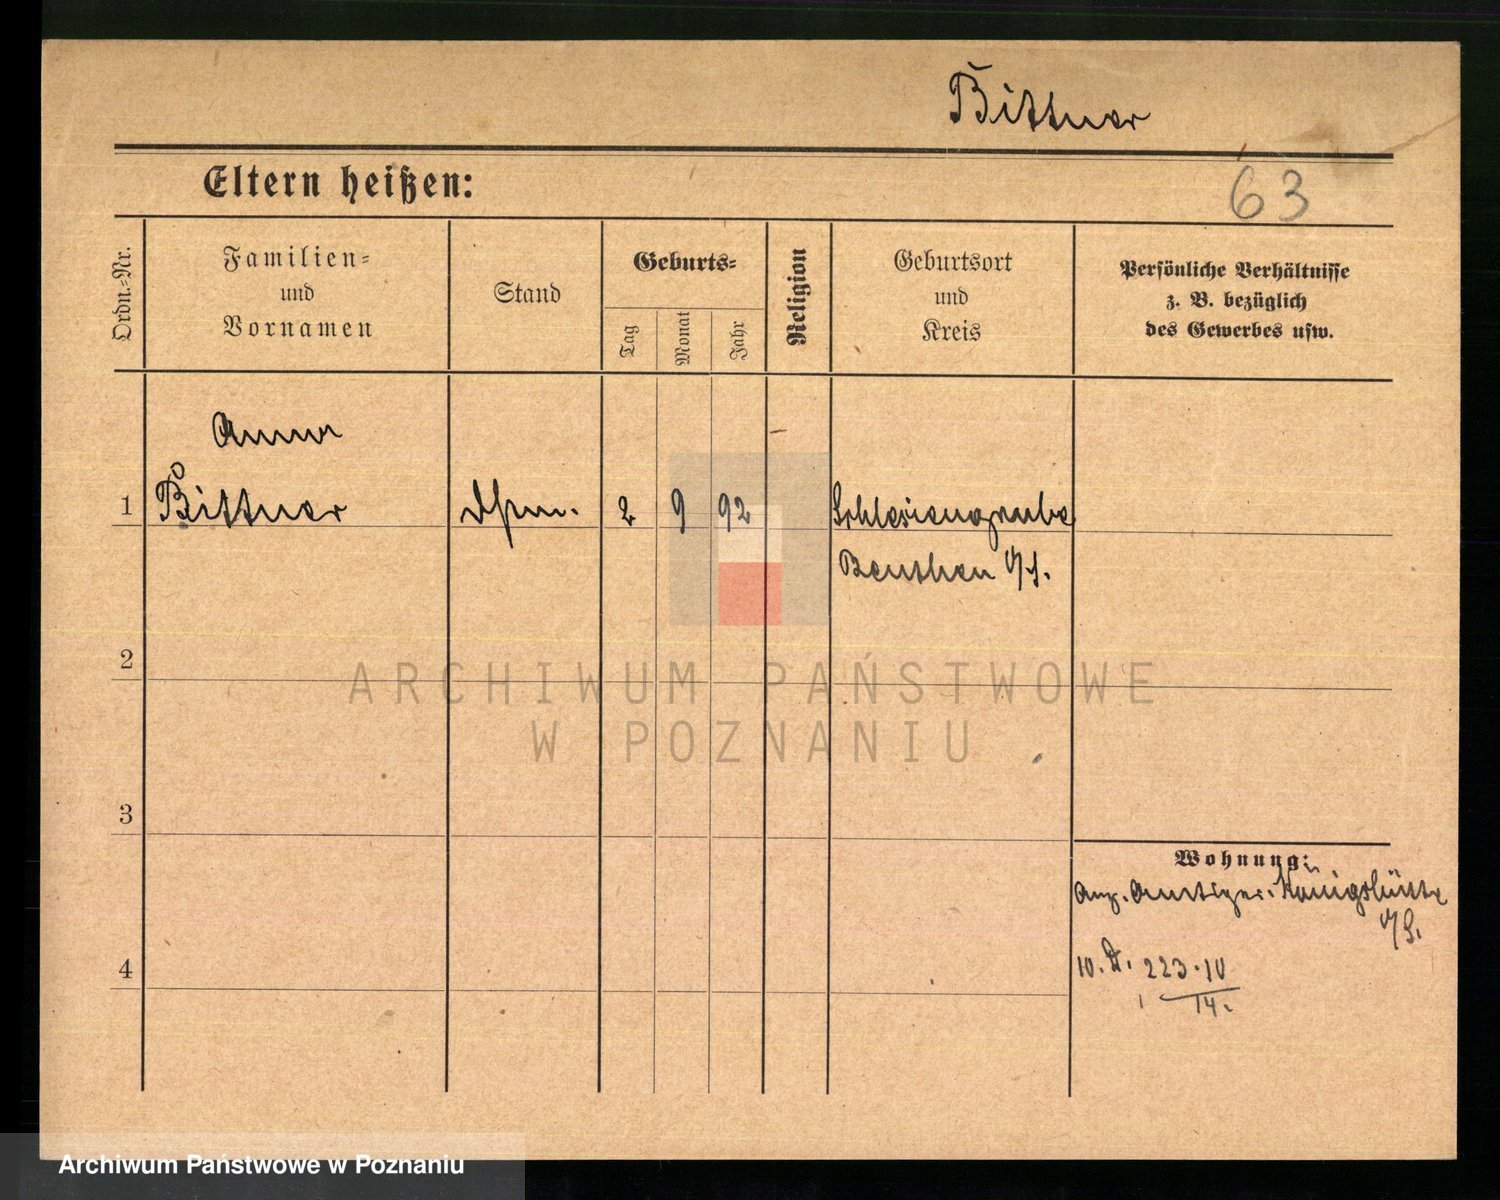 Bittner
Eltern heißen:
63
Ordn.-Nr.
Familien-
und
Vornamen
Stand
Geburts-
Tag
Monat
Jahr
Religion
Geburtsort
und
Kreis
Persönliche Verhältnisse
z. B. bezüglich
des Gewerbes usw.
Anna
1 Bittner 2 9 92 Schlesiengrube
Beuthen O/S.
2
ARCHIWUM PAŃSTWOWE
W POZNANIU
3
Wohnung:
Königshütte
O/S.
4
10. 223.10
14.
Archiwum Państwowe w Poznaniu